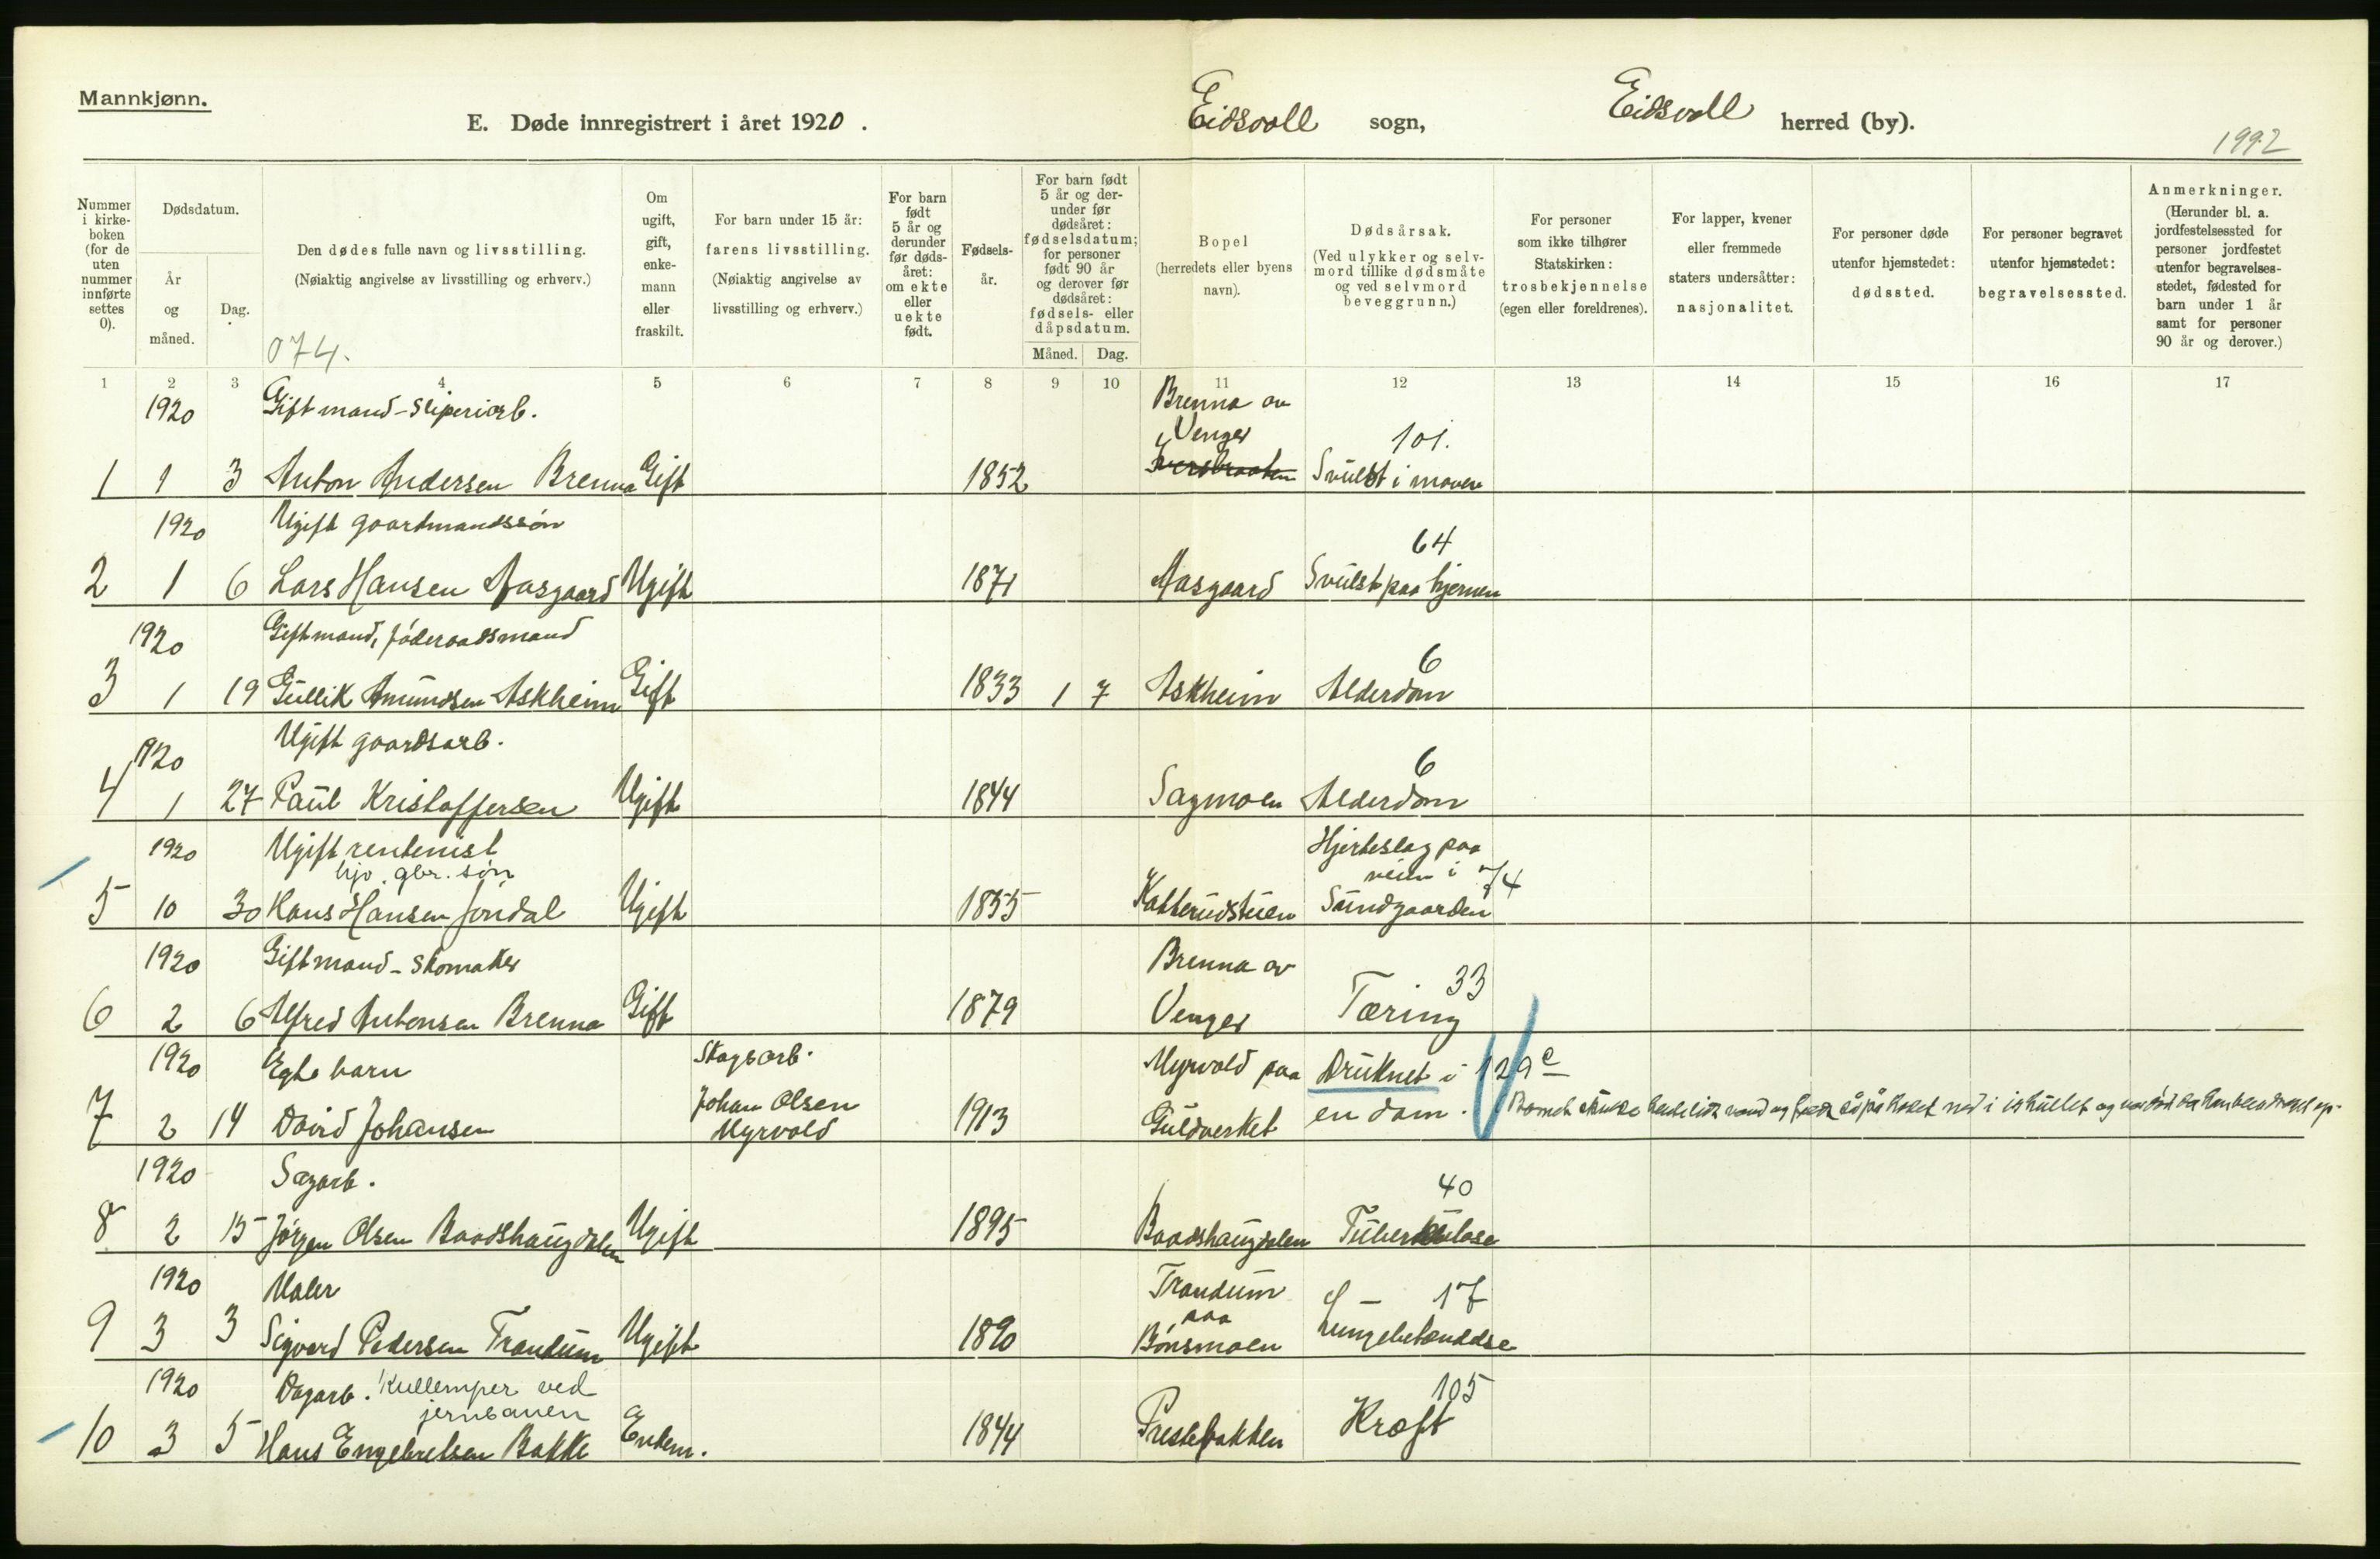 Mannkjønn.
E. Døde innregistrert i året 1920. Eidsvoll sogn, Eidsvoll herred (by).
1992
Nummer i kirkeboken (for de uten nummer innførte settes 0).
Dødsdatum.
År og måned.
Dag.
Den dødes fulle navn og livsstilling.
(Nøiaktig angivelse av livsstilling og erhverv.)
074.
Om ugift, gift, enkemann eller fraskilt.
For barn under 15 år: farens livsstilling.
(Nøiaktig angivelse av livsstilling og erhverv.)
For barn født 5 år og derunder før dødsåret: om ekte eller uekte født.
Fødselsår.
For barn født 5 år og derunder før dødsåret: fødselsdatum; for personer født 90 år og derover før dødsåret: fødsels- eller dåpsdatum.
Måned. Dag.
Bopel
(herredets eller byens navn).
Dødsårsak.
(Ved ulykker og selvmord tillike dødsmåte og ved selvmord beveggrunn.)
For personer som ikke tilhører Statskirken: trosbekjennelse (egen eller foreldrenes).
For lapper, kvener eller fremmede staters undersåtter: nasjonalitet.
For personer døde utenfor hjemstedet: dødssted.
For personer begravet utenfor hjemstedet: begravelsessted.
Anmerkninger.
(Herunder bl. a. jordfestelsessted for personer jordfestet utenfor begravelsesstedet, fødested for barn under 1 år samt for personer 90 år og derover.)
1 2 3 4 5 6 7 8 9 10 11 12 13 14 15 16 17
1920 Gift mand - Sliperiarb. Brenna av
Venger 101.
1 1 3 Anton Andersen Brenna Gift 1852 Iversbraaten Svulst i maven
1920 Ugift gaardmandssøn
64
2 1 6 Lars Hansen Aasgaard Ugift 1871 Aasgaard Svulst paa hjernen
1920 Gift mand, føderaadsmand
6
3 1 19 Gullik Amundsen Askheim Gift 1833 1 7 Askheim Alderdom
1920 Ugift gaardsarb.
6
4 1 27 Paul Kristoffersen Ugift 1844 Sagmoen Alderdom
1920 Ugift rentenist Hjerteslag paa
gbr. søn veien i 74
5 10 30 Hans Hansen Jøndal Ugift 1855 Katterudstuen Sundgaarden
1920 Gift mand - Skomaker Brenna av 33
6 2 6 Alfred Antonsen Brenna Gift 1879 Venger Tæring
1920 Egte barn Skogsarb. Myrvold paa Druknet i 129 e
7 2 14 David Johansen Johan Olsen Myrvold 1913 Guldverket en dam. Barnet skulde hente litt vand og ned i ishullet og var død da han blev draget op.
1920 Sagarb. 40
8 2 15 Jørgen Olsen Baadshaugdalen Ugift 1895 Baadshaugdalen Tuberkulose
1920 Maler Trandum 17
paa
9 3 3 Sigvard Pedersen Trandum Ugift 1890 Bønsmoen Lungebetændelse
1920 Dagarb. Kullemper ved 105
jernbanen
10 3 5 Hans Engebretsen Bakke Enkem. 1844 Prestebakken Kræft